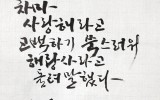 차마
사랑해라고
고백하기 쑥스러워
해랑사라고
흘려 말했다